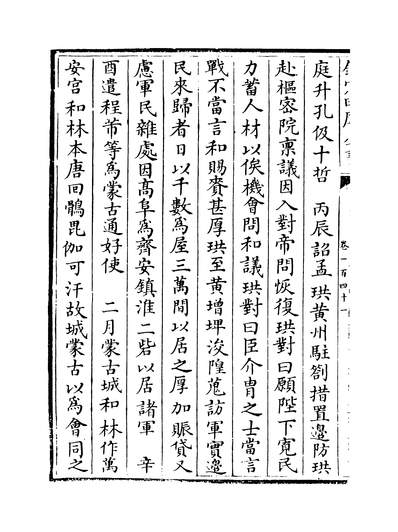 庭升孔伋十哲　丙辰詔孟珙黄州駐劄措置邉防珙
赴樞宻院禀議因入對帝問恢復珙對曰願陛下寛民
力蓄人材以俟機㑹問和議珙對曰臣介胄之士當言
戰不當言和賜賚甚厚珙至黄增埤浚隍蒐訪軍實邉
民來歸者日以千數為屋三萬間以居之厚加賑貸又
慮軍民雜處因髙阜為齊安鎮淮二砦以居諸軍　辛
酉遣程芾等為蒙古通好使　二月蒙古城和林作萬
安宫和林本唐回鶻毘伽可汗故城蒙古以為㑹同之
卷一百四十一